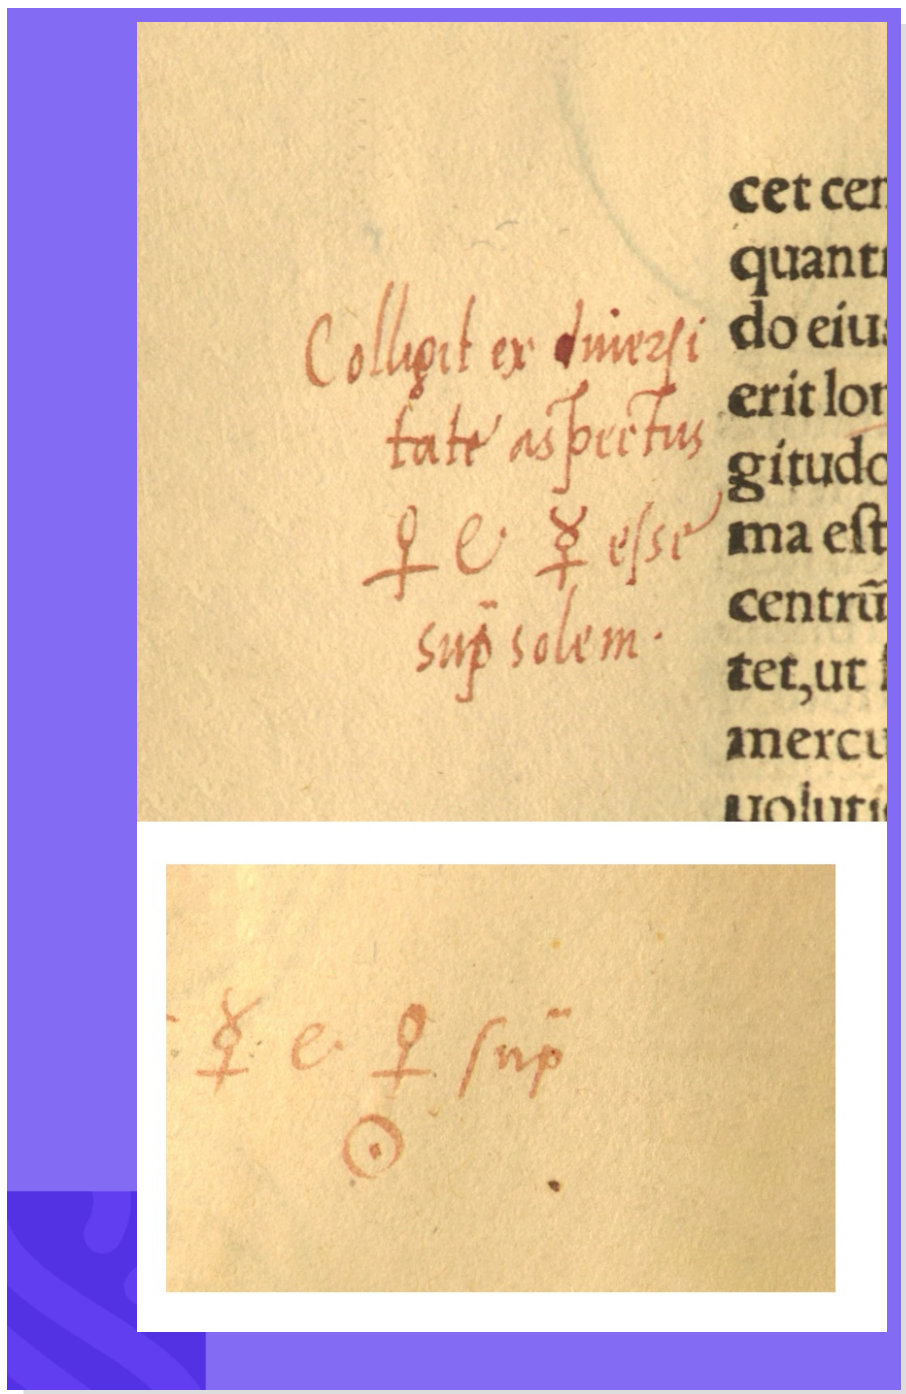 Colligit ex diuersi
tate aspectus
♀ e ☿ esse
sup̄ solem.
cet cen
quant
do eius
erit lon
gitudo
ma eſt
centrũ
tet,ut
mercu
uoluti
☿ e ♀ ſup̄
☉